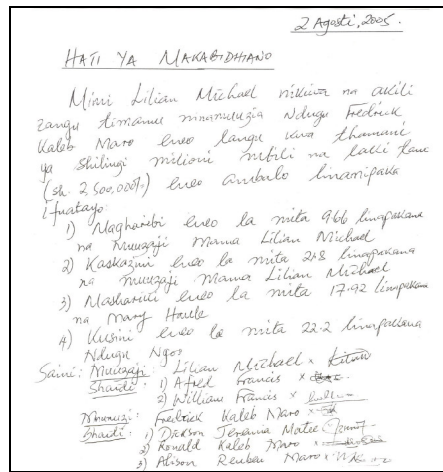 2 Agosti, 2005.
HATI YA MAKABIDHIANO
Mimi Lilian Michael nikiwa na akili
zangu timamu ninamuuzia Ndugu Fredrick
Kaleb Maro eneo langu kwa thamani
ya shilingi milioni mbili na laki tano
(sh. 2,500,000/=) eneo ambalo linamipaka
ifuatayo:
1) Magharibi eneo la mita 9.66 linapakana
na Muuzaji Mama Lilian Michael
2) Kaskazini eneo la mita 21.8 linapakana
na muuzaji Mama Lilian Michael
3) Mashariki eneo la mita 17.92 linapakana
na Mary Haule
4) Kusini eneo la mita 22.2 linapakana
Ndugu Ngoo
Saini: Muuzaji: Lilian Michael x
Shaidi: 1) Alfred Francis x
2) William Francis x
Mnunuzi: Fredrick Kaleb Maro x
Shaidi: 1) Dickson Jeremia
2) Ronald Kaleb Maro x
3) Alison Reuben Maro x